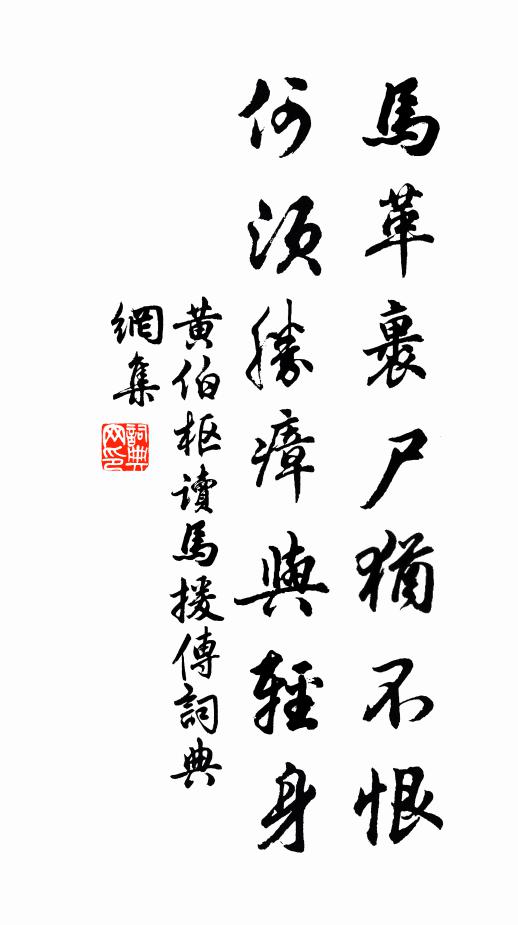 馬革裹尸猶不恨
何須勝瘴與輕身
黃伯枢讀馬援傳詞典
網集
詞典網印